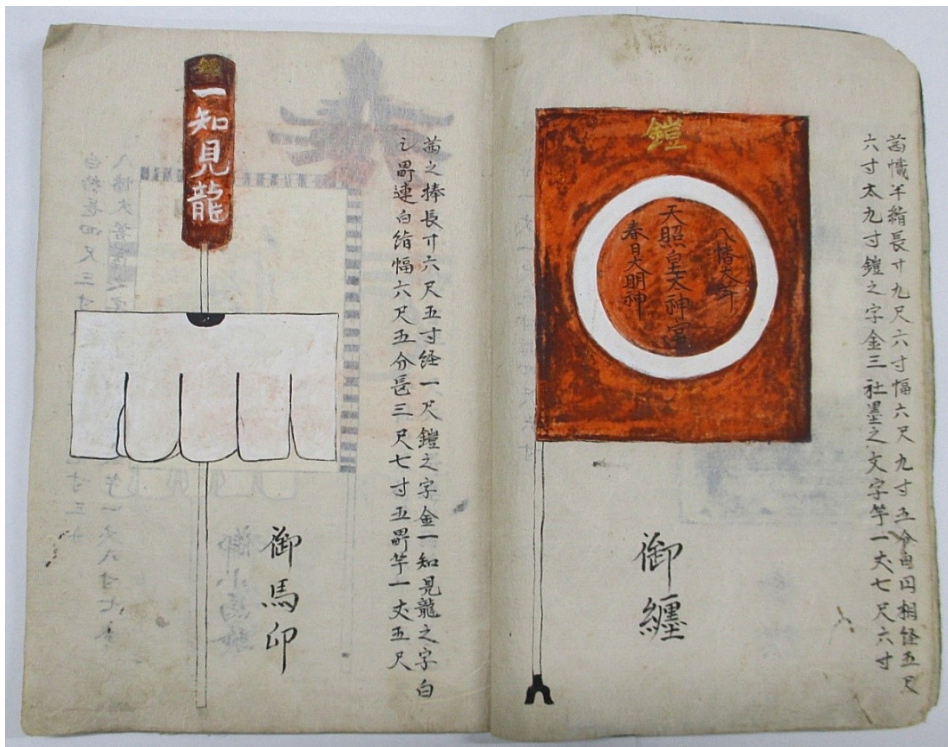 茜幟半絹長サ九尺六寸幅六尺九寸五分白円相経五尺
六寸太九寸鎧之字金三社墨之文字竿一丈七尺六寸
鎧
八幡大
天照皇太神宮
春日大明神
御纏
茜之捧長サ六尺五寸経一尺鎧之字金一知見龍之字白
連白絹幅六尺五分長三尺七寸五 竿一丈五尺
鎧
一知見龍
御馬印